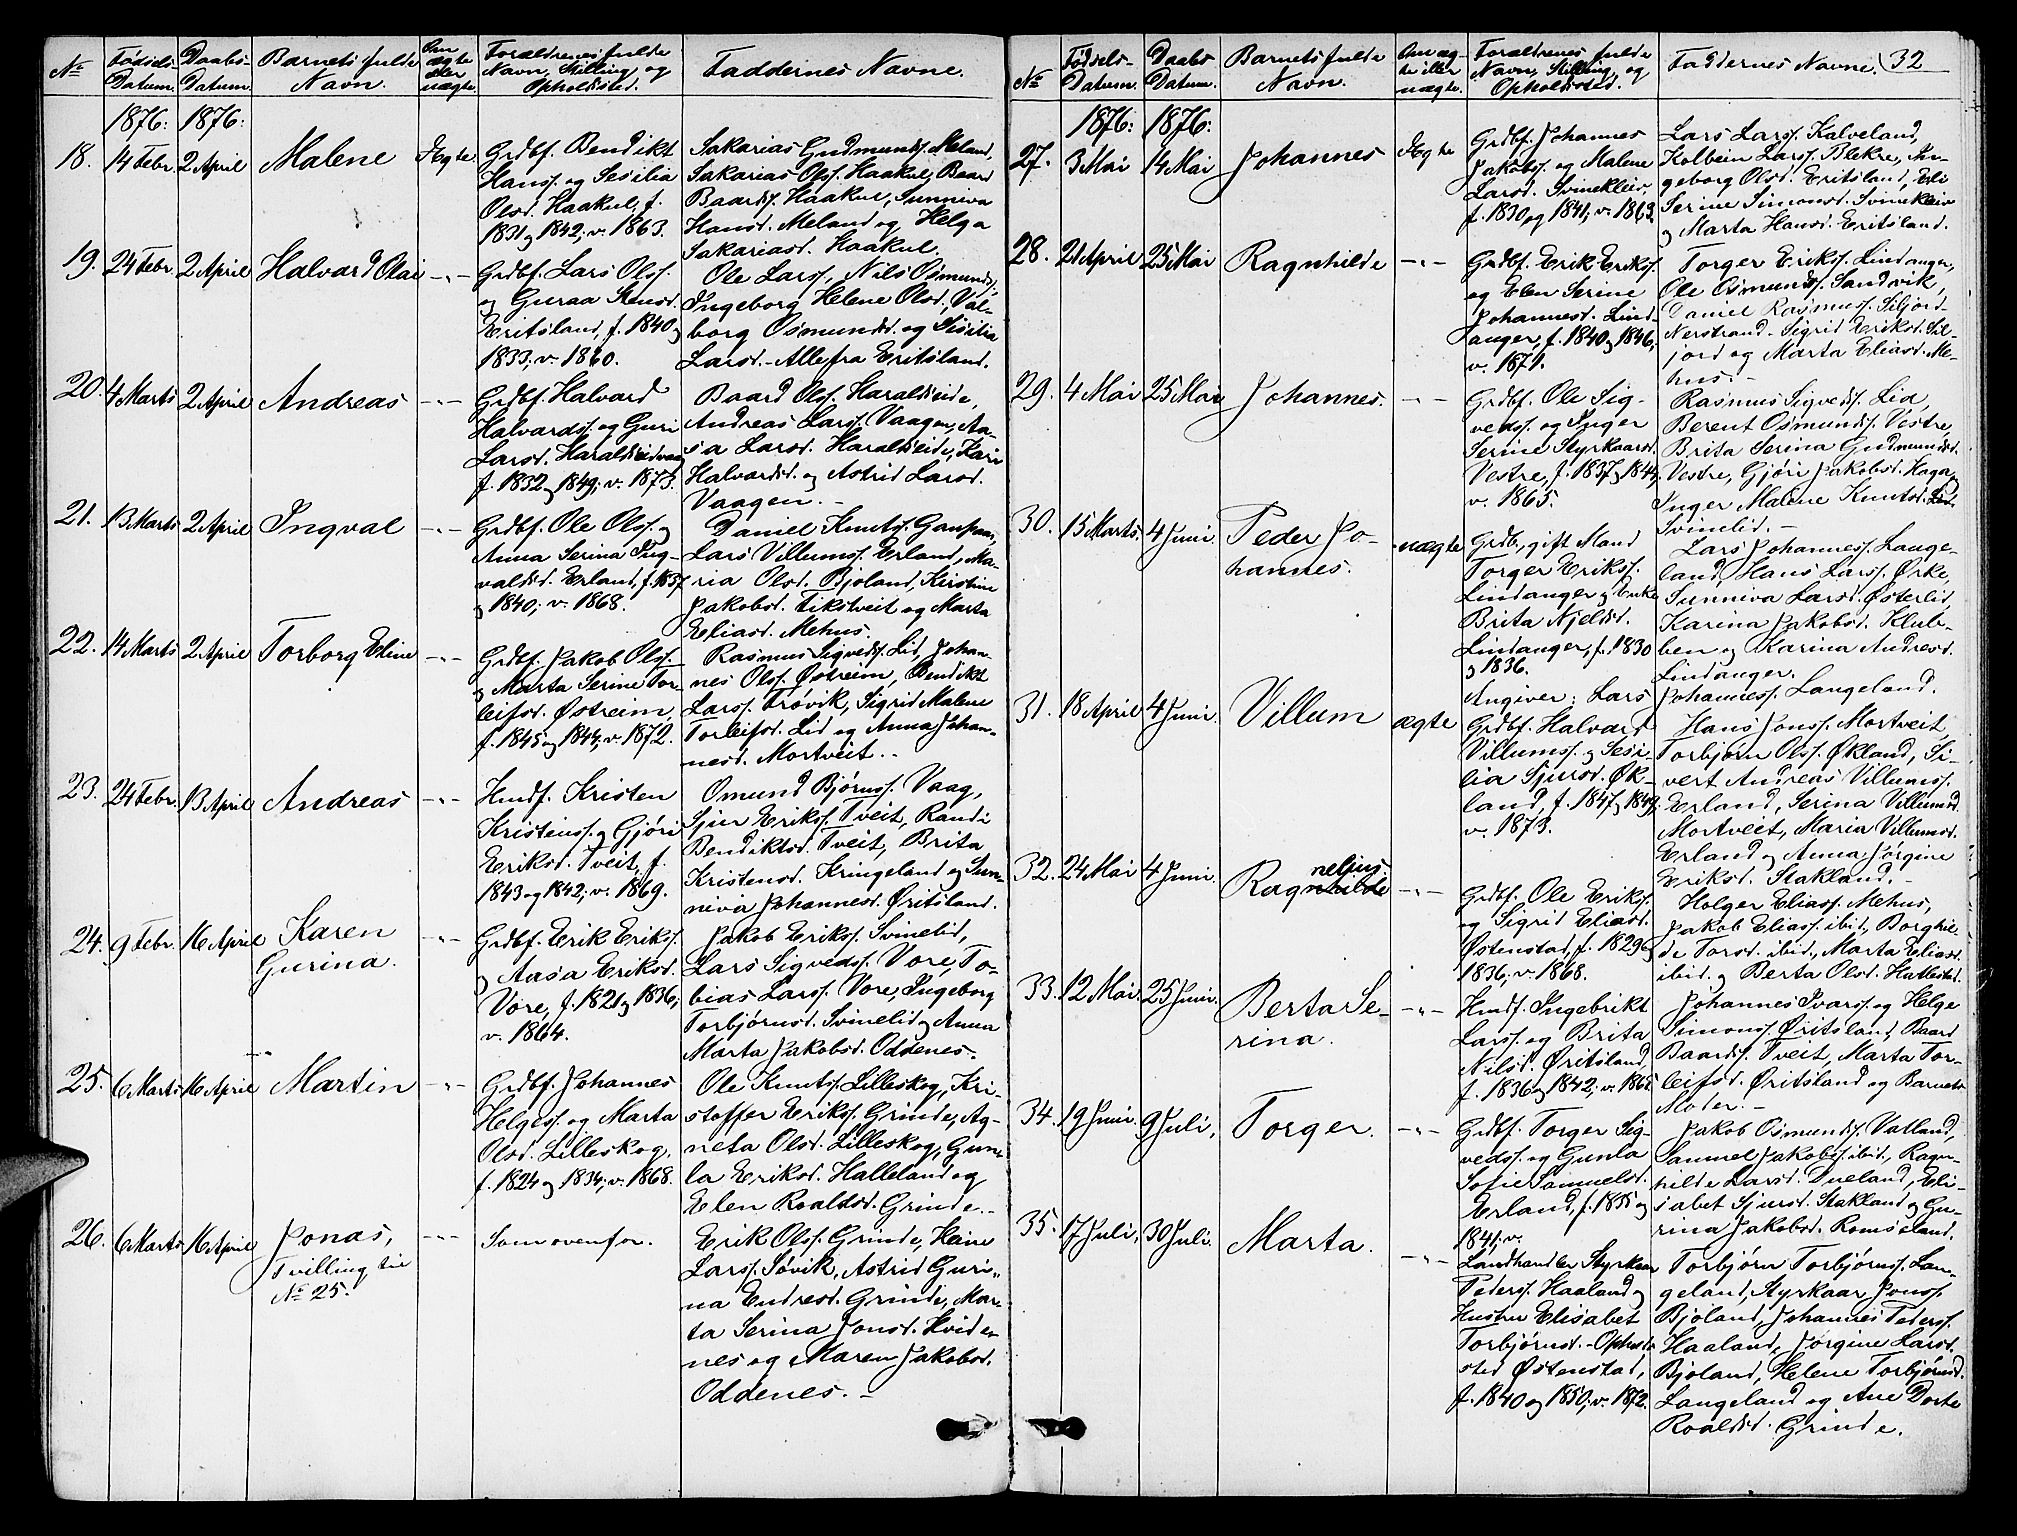 No
Fødsels-
Datum.
Daabs-
Datum.
Barnets fulde
Navn.
Om
ægte
eller
uægte.
Forældrenes fulde
Navn, Stilling og
Opholdssted.
Faddernes Navne.
1876:
1876:
18.
14 Febr.
2 April
Malene
Ægte.
Grdbf. Bendikt
Hanss. og Sesilia
Olsd. Haakul, f.
1831 og 1842; v. 1863.
Sakarias Gudmunds. Meland,
Sakarias Ols. Haakul, Baard
Baards. Haakul, Sunniva
Hansd. Meland og Helga
Sakariasd. Haakul.
19.
24 Febr.
2 April
Halvard Olai
-"-
Grdbf. Lars Olss.
og Guraa Stensd.
Eritsland, f. 1840 og
1833; v. 1860.
Ole Larss., Nils Osmunds.,
Ingeborg Helene Olsd., Val-
borg Osmundsd. og Sisilia
Larsd. - Alle fra Eritsland.
20.
4 Marts
2 April
Andreas
-"-
Grdbf. Halvard
Halvards. og Guri
Larsd. Haraldseidvaag
f. 1832 og 1849; v. 1873.
Baard Olss. Haraldseide,
Andreas Larss. Vaagen, Aa-
sa Larsd. Haraldseide, Kari
Halvardsd. og Astrid Larsd.
Vaagen. -
21.
13 Marts
2 April
Ingval
-"-
Grdbf. Ole Olss. og
Anna Serina Ing-
valdsd. Erland, f. 1837
og 1840; v. 1868.
Daniel Knuts.
Lars Villumss. Erland, Ma-
ria Olsd. Bjoland, Kirstine
Jakobsd. Fikstveit og Marta
Eliasd. Mehus.
22.
14 Marts
2 April
Torborg Eline
-"-
Grdbf. Jakob Olss.
og Marta Serine Tor-
leifsd. Østreim,
f. 1845 og 1844; v. 1872.
Rasmus Sigveds. Lid, Johan-
nes Olss. Østreim, Bendikt
Larss. Trøvik, Sigrid Malene
Torleifsd. Lid og Anna Johan-
nesd. Mortveit. -
23.
24 Febr.
13 April
Andreas
-"-
Hmdf. Kristen
Kristens. og Gjøri
Eriksd. Tveit, f.
1843 og 1842; v. 1869.
Omund Bjørns. Vaag,
Sjur Erikss. Tveit, Randi
Bendiktsd. Tveit, Brita
Kristensd. Kringeland og Sun-
niva Johannesd. Øritsland.
24.
9 Febr.
16 April
Karen
Gurina.
-"-
Grdbf. Erik Erikss.
og Aasa Eriksd.
Vore, f. 1821 og 1836;
v. 1864.
Jakob Erikss. Svinelid,
Lars Sigveds. Vore, To-
bias Larss. Vore, Ingeborg
Torbjørnsd. Svinelid og Anna
Marta Jakobsd. Oddenes.
25.
6 Marts
16 April
Martin
-"-
Grdbf. Johannes
Helges. og Marta
Olsd. Lilleskog,
f. 1824 og 1834; v. 1868.
Ole Knuts. Lilleskog, Kri-
stoffer Erikss. Grinde, Ag-
neta Olsd. Lilleskog, Gun-
la Eriksd. Halleland og
Elen Roaldsd. Grinde. -
26.
6 Marts
16 April
Jonas,
Tvilling til
No 25.
-"-
Som ovenfor.
Erik Olss. Grinde, Heine
Larss. Søvik, Astrid Guri-
na Endresd. Grinde, Mar-
ta Serina Jonsd. Kvider-
nes og Maren Jakobsd.
Oddenes. -
No
Fødsels-
Datum.
Daabs-
Datum.
Barnets fulde
Navn.
Om æg-
te eller
uægte.
Forældrenes fulde
Navn, Stilling og
Opholdssted.
Faddernes Navne.
32
1876:
1876:
27.
3 Mai
14 Mai
Johannes
Ægte
Grdbf. Johannes
Jakobs. og Malene
Larsd. Svinekleiv,
f. 1830 og 1841; v. 1863.
Lars Larss. Kalveland,
Kolbein Larss. Blekre, In-
geborg Olsd. Eritsland, Eli
Serine Simonsd. Svinekleiv
og Marta Hansd. Eritsland.
28.
21 April
25 Mai
Ragnhilde
-"-
Grdbf. Erik Erikss.
og Elen Serine
Johannesd. Lind-
anger, f. 1840 og 1846;
v. 1871.
Torger Erikss. Lindanger,
Ole Osmunds. Sandvik,
Daniel Rasmuss. Siljord-
Nerstrand. Sigrid Eriksd. Sil-
jord og Marta Eliasd. Me-
hus. -
29.
4 Mai
25 Mai
Johannes.
-"-
Grdbf. Ole Sig-
veds. og Inger
Serine Styrkaarsd.
Vestre, f. 1837 og 1844;
v. 1865.
Rasmus Sigveds. Lid,
Berent Osmunds. Vestre,
Brita Serina Gudmundsd.
Vestre, Gjøri Jakobsd. Haga,
Inger Malene Knutsd.
Svinelid. -
30.
15 Marts.
4 Juni.
Peder Jo-
hannes.
uægte
Grdb., gift Mand
Torger Erikss.
Lindanger og Enke
Brita Njelsd.
Lindanger, f. 1830
og 1836.
Angiver: Lars
Johanness. Langeland.
Lars Johanness. Lange-
land, Hans Larss. Ørke,
Sunniva Larsd. Østerlid,
Karina Jakobsd. Klub-
ben og Karina Andresd.
Lindanger.
31.
18 April
4 Juni.
Villum
ægte
Grdbf. Halvard
Villumss. og Sesi-
lia Sjursd. Øk-
land, f. 1847 og 1849;
v. 1873.
Hans Jonss. Mortveit,
Torbjørn Olss. Økland, Si-
vert Andreas Villumss.
Erland, Serina Villumsd.
Mortveit, Maria Villumsd.
Erland og Anna Jørgine
Eriksd. Stakland. -
32.
24 Mai
4 Juni.
neljus.
Ragnhilde
-"-
Grdbf. Ole Erikss.
og Sigrid Eliasd.
Østenstad, f. 1829 og
1836; v. 1868.
Holger Eliass. Mehus,
Jakob Eliass. ibid., Borghil-
de Torsd. ibid., Marta Eliasd.
ibid. og Berta Olsd. Hattested.
33.
12 Mai.
25 Juni.
Berta Se-
rina.
-"-
Hmdf. Ingebrikt
Larss. og Brita
Nilsd. Øritsland,
f. 1836 og 1842; v. 1865.
Johannes Ivarss. og Helge
Simonss. Øritsland, Baard
Baards. Tveit, Marta Tor-
leifsd. Øritsland og Barnets
Moder. -
34.
19 Juni.
9 Juli.
Torger.
-"-
Grdbf. Torger Sig-
veds. og Gunla
Sofie Samuelsd.
Erland, f. 1835 og
1841; v.
Jakob Osmunds. Vatland,
Samuel Jakobs. ibid., Ragn-
hilde Larsd. Dueland, Eli-
sabet Sjursd. Stakland og Gu-
rina Jakobsd. Romseland.
35.
17 Juli,
30 Juli.
Marta.
-"-
Landhandler Styrkaar
Peders. Haaland og
Hustru Elisabet
Torbjørnsd. - Opholds-
sted Østenstad,
f. 1840 og 1850; v. 1872.
Torbjørn Torbjørns. Lan-
geland, Styrkaar Jonss.
Bjoland, Johannes Peders.
Haaland, Jørgine Larsd.
Bjoland, Helene Torbjørnsd.
Langeland og Ane Dorte
Roaldsd. Grinde.